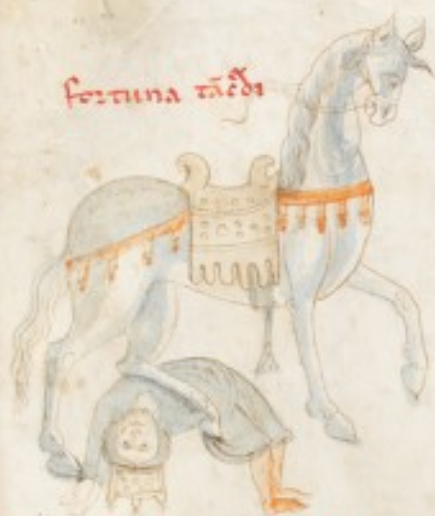 fortuna tāc̄di